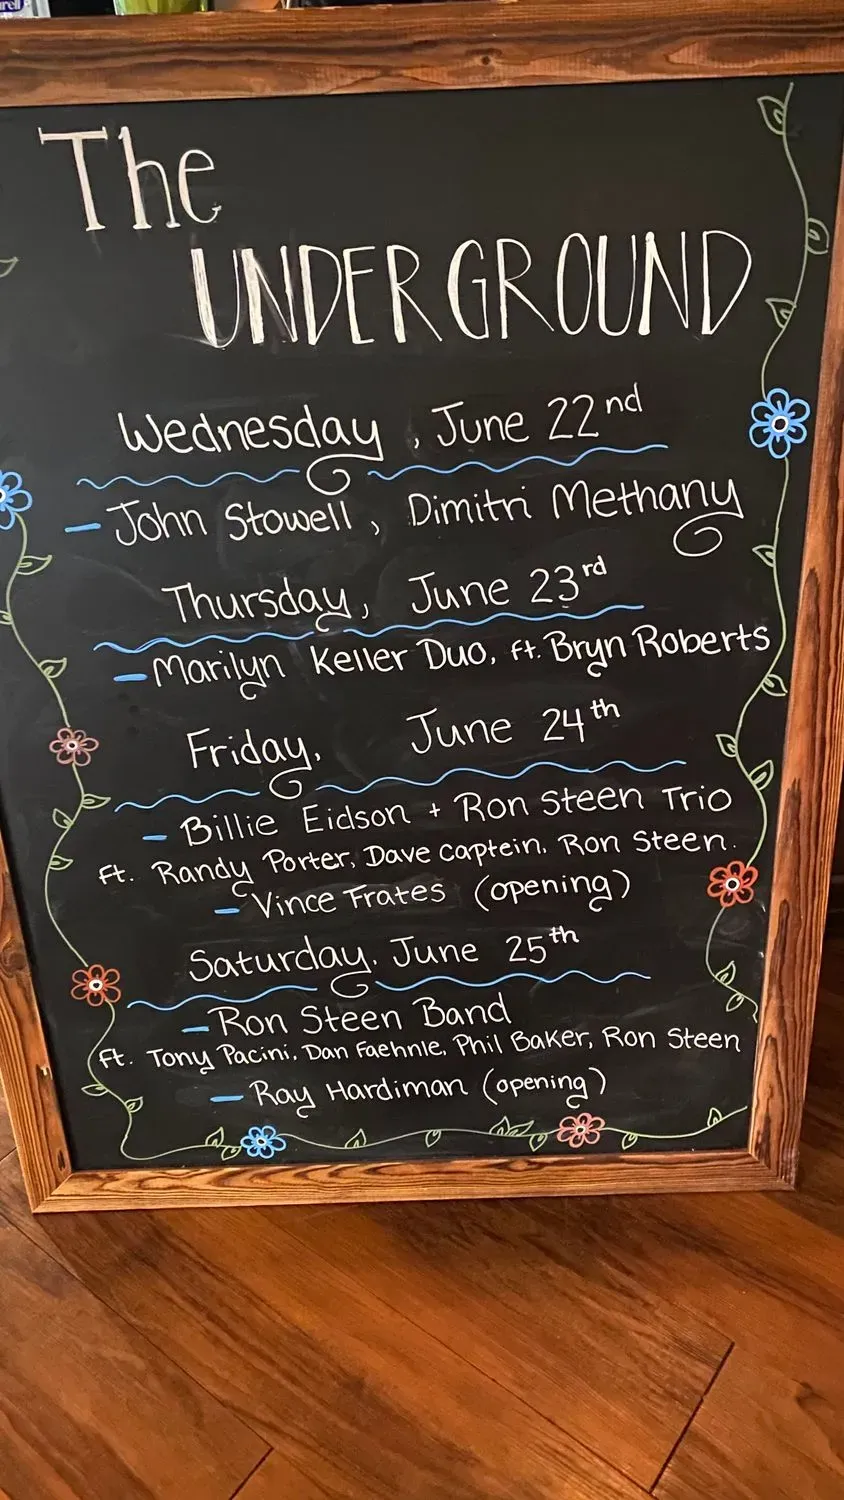 The
UNDERGROUND
Wednesday, June 22nd
- John Stowell, Dimitri Methany
Thursday, June 23rd
- Marilyn Keller Duo, ft. Bryn Roberts
Friday, June 24th
- Billie Eidson + Ron Steen Trio
ft. Randy Porter, Dave Captein, Ron Steen.
- Vince Frates (opening)
Saturday, June 25th
- Ron Steen Band
ft. Tony Pacini, Dan Faehnle, Phil Baker, Ron Steen
- Ray Hardiman (opening)